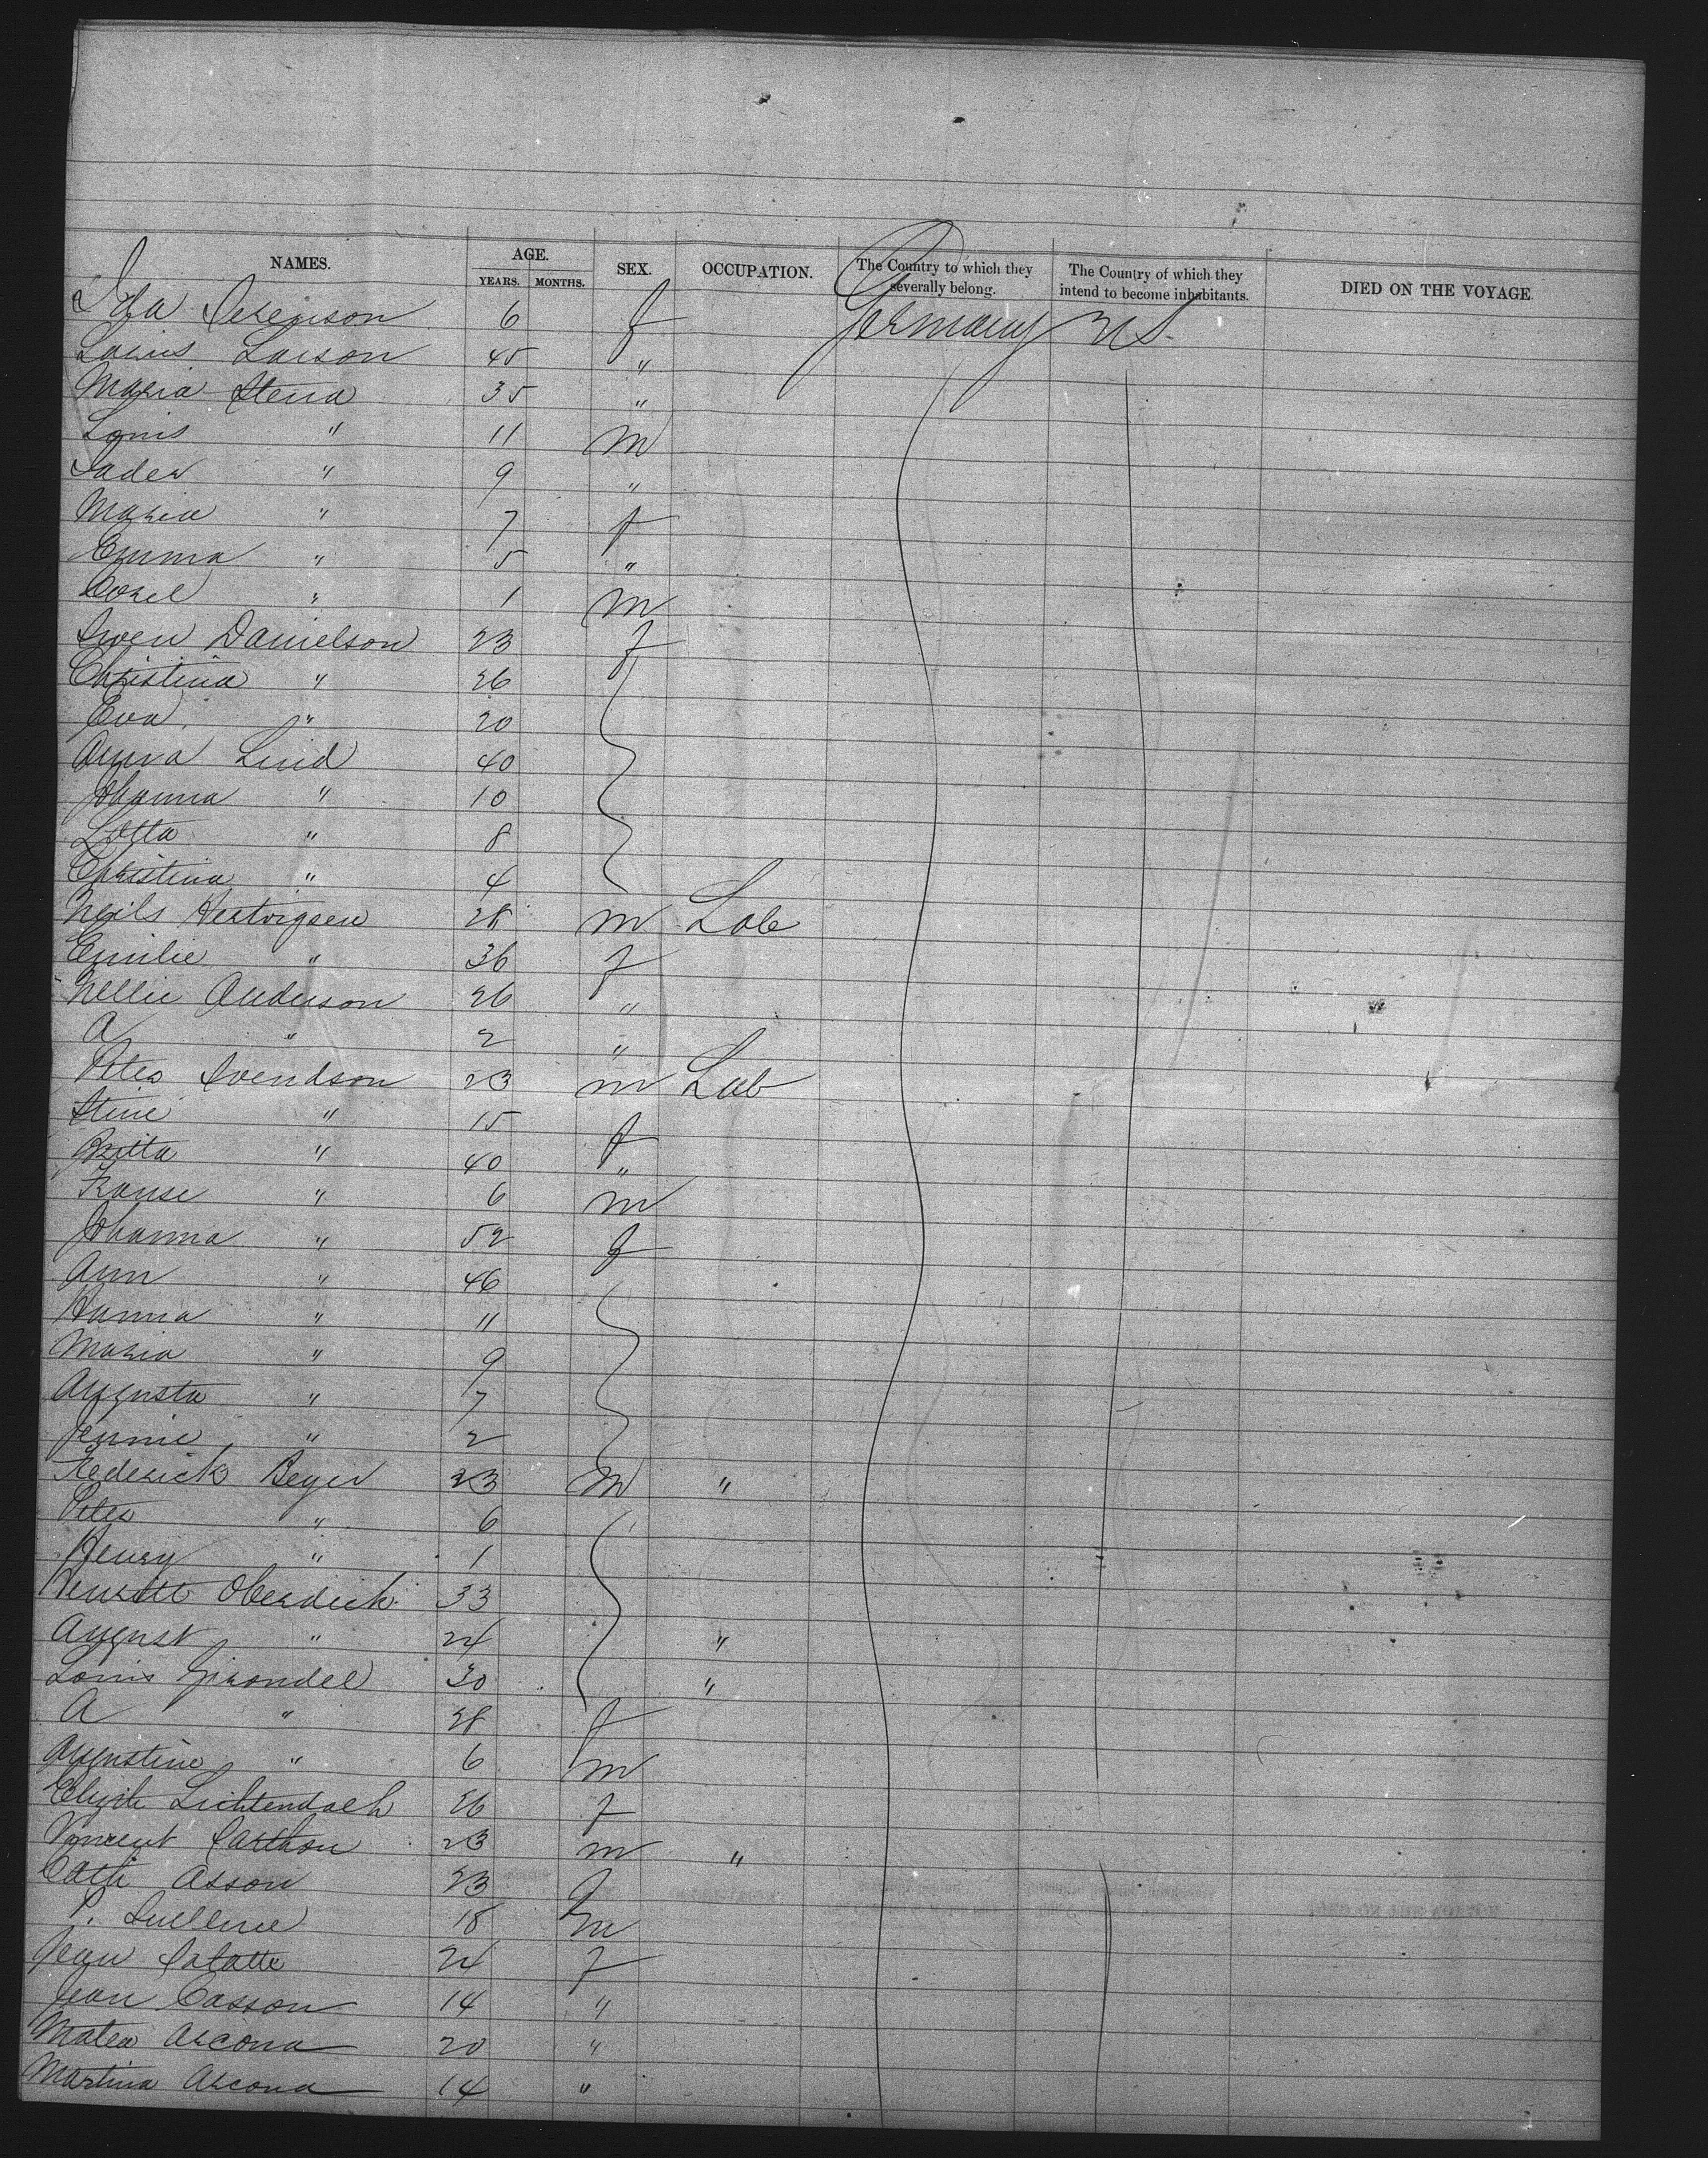 NAMES. AGE. SEX. OCCUPATION. The Country to which they severally belong. The Country of which they intend to become inhabitants. DIED ON THE VOYAGE.
YEARS. MONTHS.
Ida 6 f Germany U.S.
Louis Larson 45 "
Maria Stena 35 "
Louis " 11 m
" 9 "
Maria " 7 f
Emma " 5 "
" 1 m
Swen Danielson 23 f
Christina " 26
Eva " 20
Anna Lind 40
Johanna " 10
Lotta " 8
Christina " 4
Neils Hertvigsen 28 m Lab
Emilie " 36 f
Nellie Anderson 26 "
A " 2 "
Peter Svendson 23 m Lab
Stine " 15 f
Britta " 40 "
Franse " 6 m
Johanna " 52 f
Ann " 46
Hanna " 11
Maria " 9
Augusta " 7
Jennie " 2
Frederick Beyer 23 m "
Peter " 6
Henry " 1
Oberdick 33
August " 24 "
Louis Girondel 30 "
A " 28 f
Augustine " 6 m
Lichtendach 26 f
Vincent 23 m "
Cath Asson 23 f
P. 18 m
Jean Salatte 24 f
Jean Casson 14 "
Matea Arcona 20 "
Martina Arcona 14 "